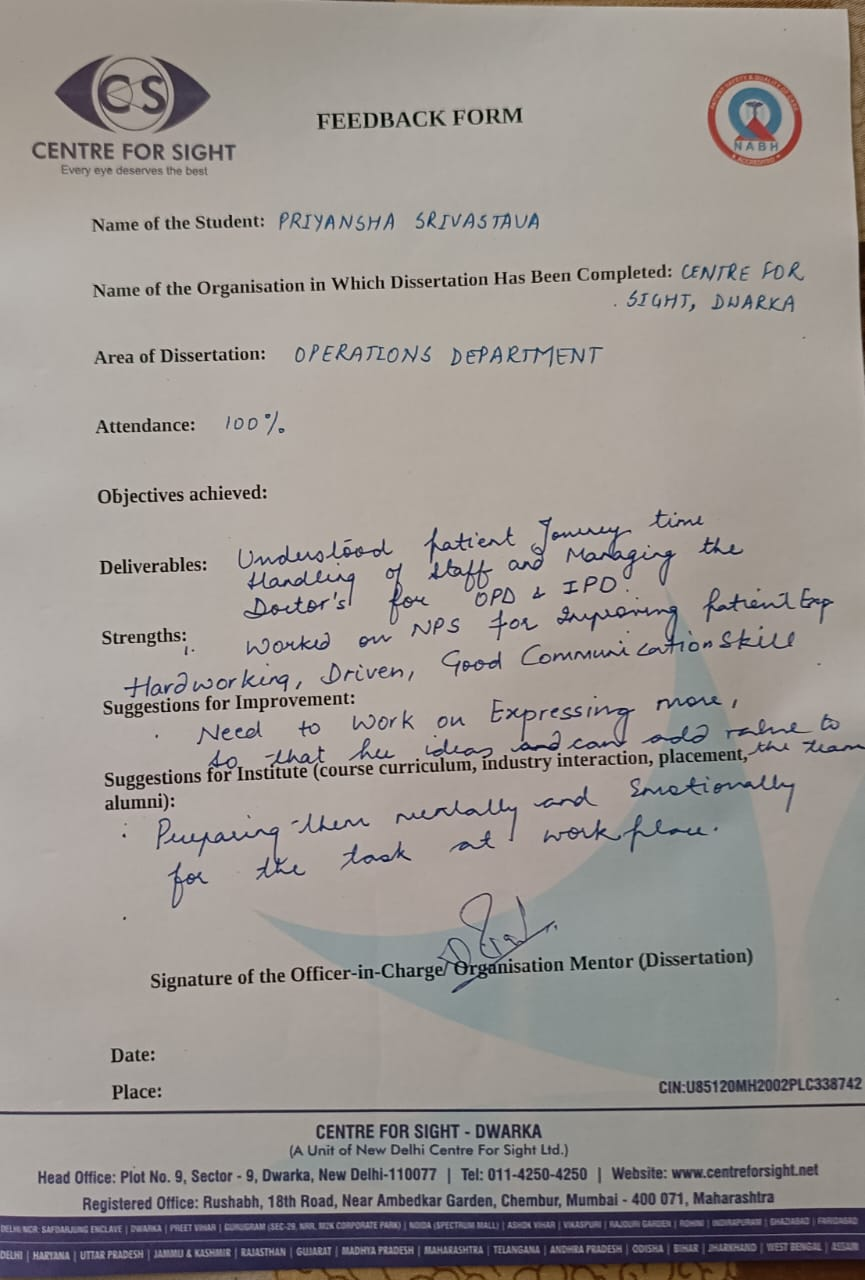 CS
CENTRE FOR SIGHT
Every eye deserves the best
FEEDBACK FORM
PATIENT SAFETY & QUALITY OF CARE
NABH
ACCREDITED
Name of the Student: PRIYANSHA SRIVASTAVA
Name of the Organisation in Which Dissertation Has Been Completed: CENTRE FOR
SIGHT, DWARKA
Area of Dissertation: OPERATIONS DEPARTMENT
Attendance: 100%
Objectives achieved:
Deliverables: Understood patient Journey time
Handling of Staff and Managing the
Doctor's for OPD & IPD.
Strengths: Worked on NPS for Improving patient Exp
1. Hardworking, Driven, Good Communication Skill
Suggestions for Improvement:
. Need to work on Expressing more,
so that her ideas and can add value to
the team
Suggestions for Institute (course curriculum, industry interaction, placement,
alumni):
: Preparing them mentally and Emotionally
for the task at workplace.
Signature of the Officer-in-Charge/ Organisation Mentor (Dissertation)
Date:
Place:
CIN:U85120MH2002PLC338742
CENTRE FOR SIGHT - DWARKA
(A Unit of New Delhi Centre For Sight Ltd.)
Head Office: Plot No. 9, Sector - 9, Dwarka, New Delhi-110077 | Tel: 011-4250-4250 | Website: www.centreforsight.net
Registered Office: Rushabh, 18th Road, Near Ambedkar Garden, Chembur, Mumbai - 400 071, Maharashtra
DELHI NCR: SAFDARJUNG ENCLAVE | DWARKA | PREET VIHAR | GURUGRAM (SEC-29, NRR, M2K CORPORATE PARK) | NOIDA (SPECTRUM MALL) | ASHOK VIHAR | VIKASPURI | RAJOURI GARDEN | ROHINI | INDIRAPURAM | GHAZIABAD | FARIDABAD
DELHI | HARYANA | UTTAR PRADESH | JAMMU & KASHMIR | RAJASTHAN | GUJARAT | MADHYA PRADESH | MAHARASHTRA | TELANGANA | ANDHRA PRADESH | ODISHA | BIHAR | JHARKHAND | WEST BENGAL | ASSAM